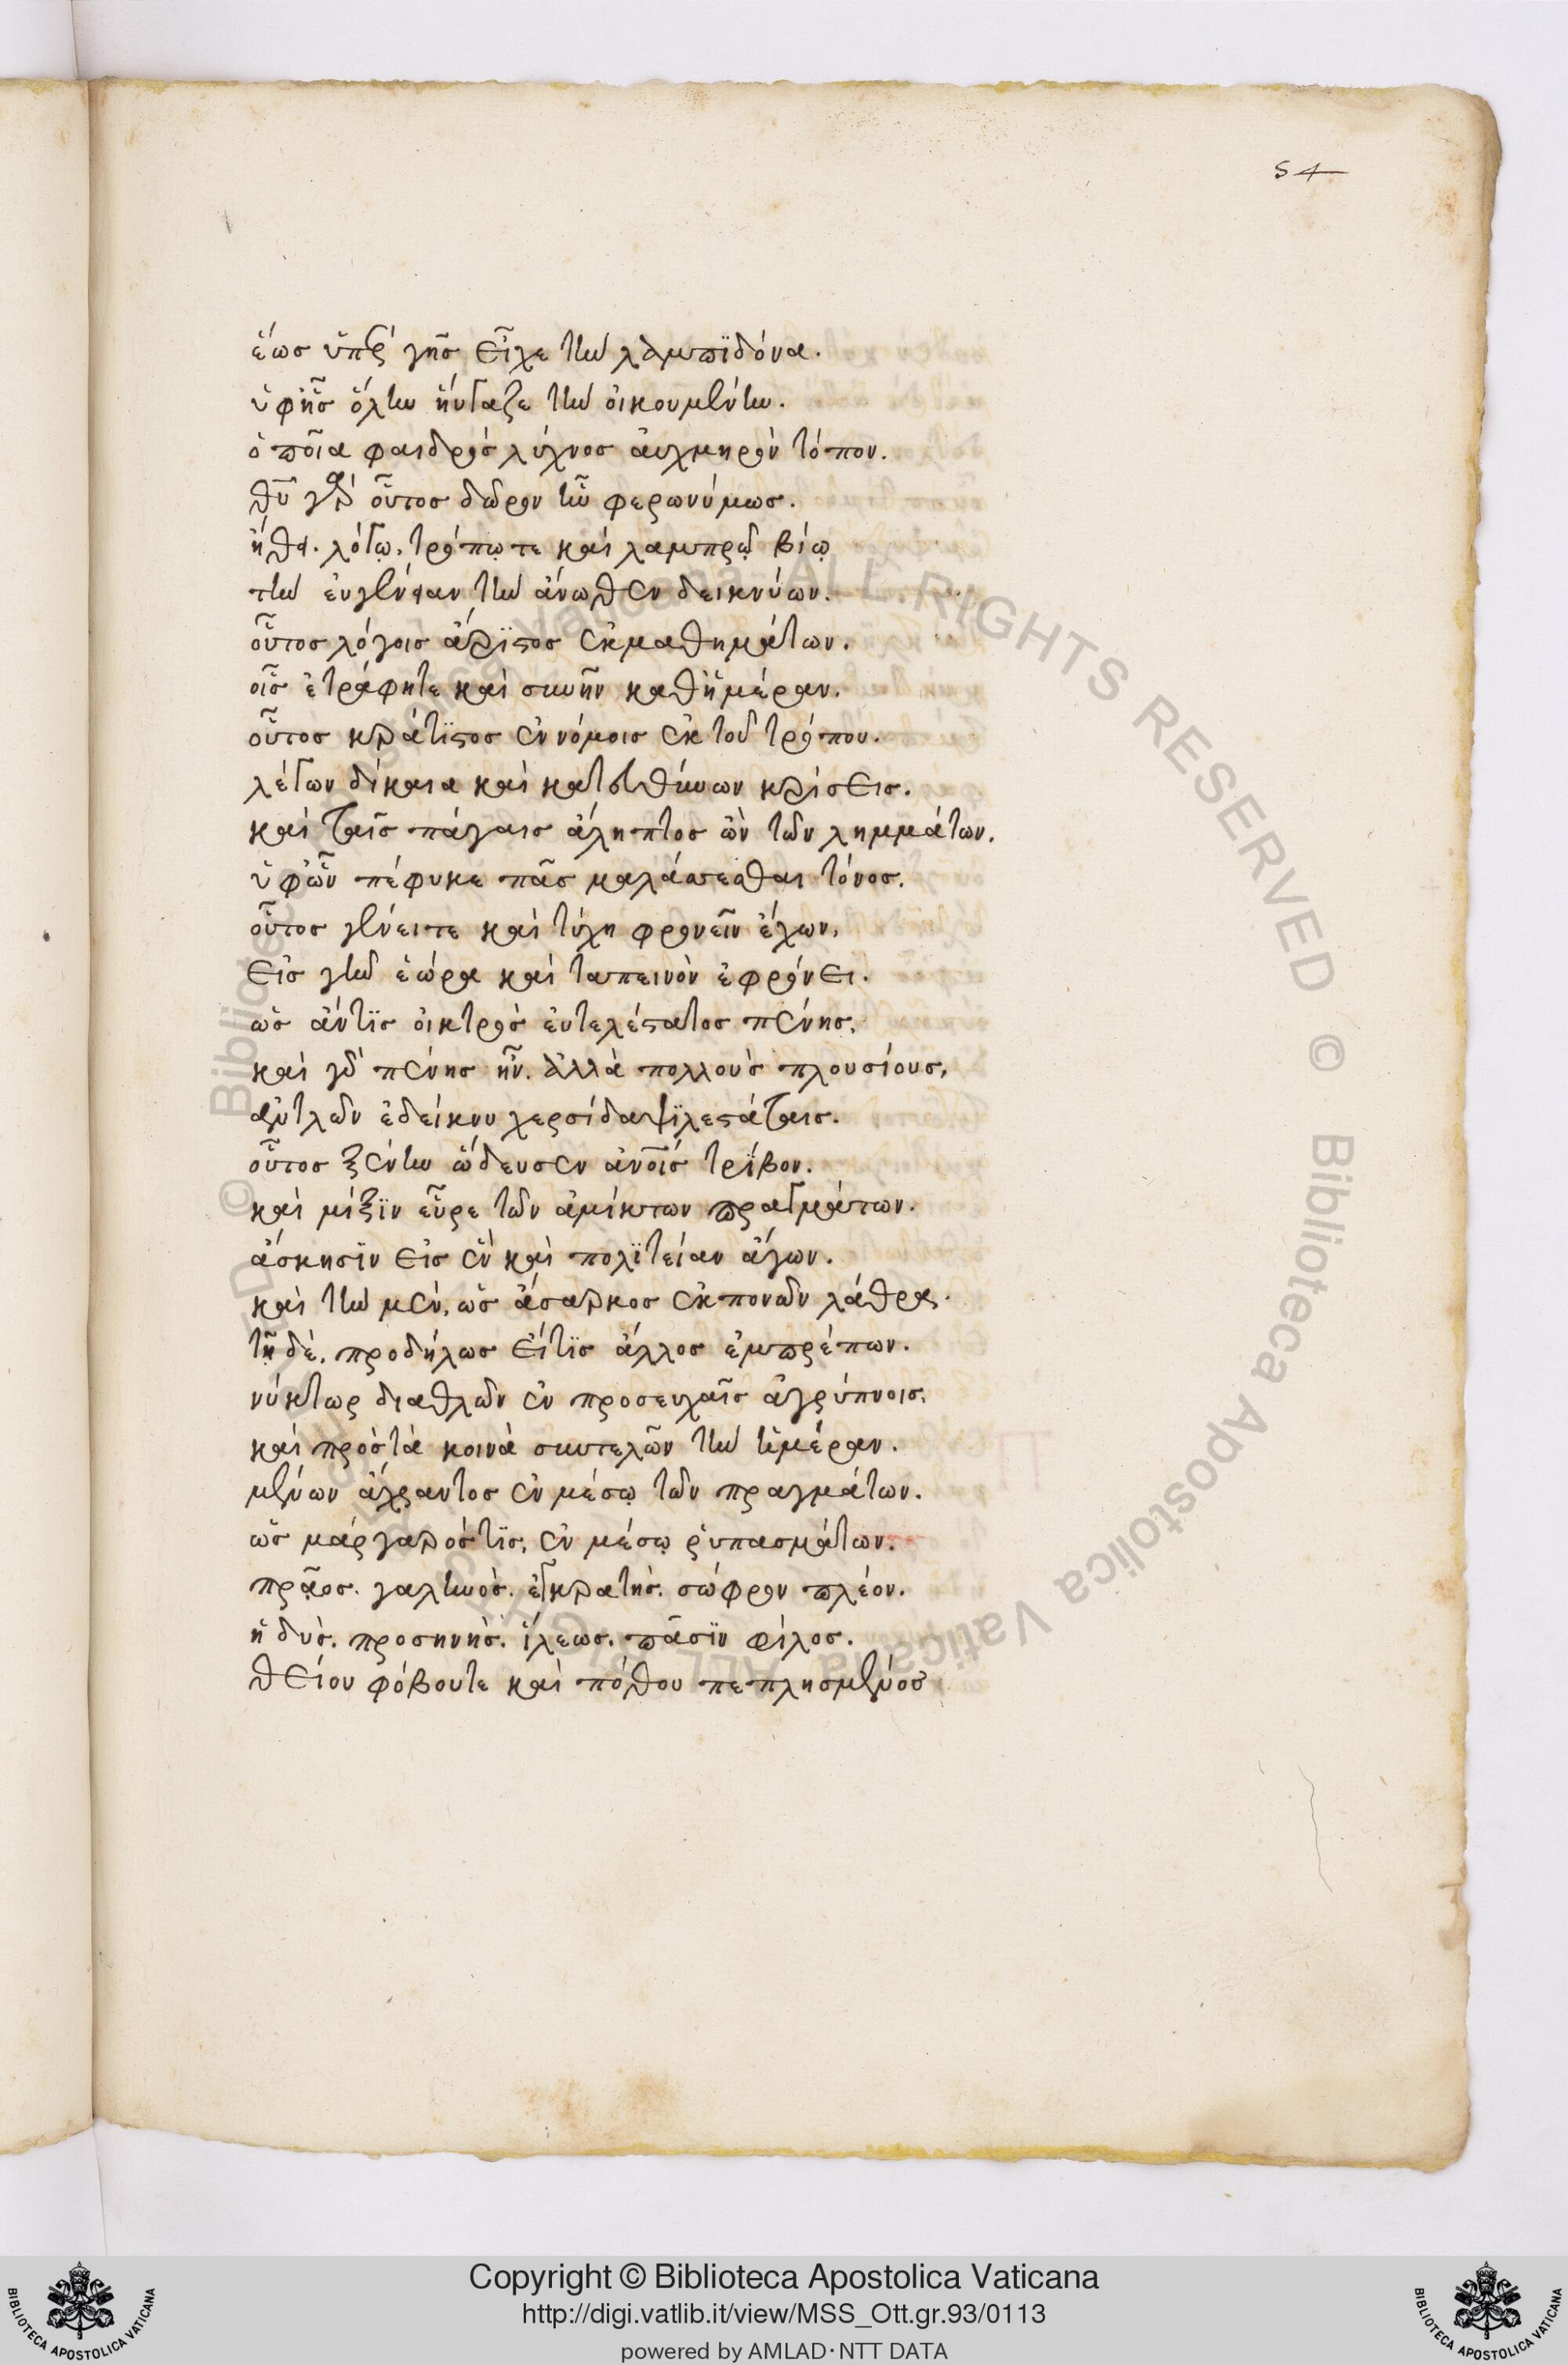 54
ἕως ὑπὲρ γῆς εἶχε τὴν λαμπϊδόνα.
ὑφῆς ὅλην ηὔγαζε τὴν οἰκουμένην.
ὁποῖα φαιδρὸς λύχνος αὐχμηρὸν τόπον.
θῦ γὰρ οὗτος δῶρον ἦν φερωνύμως.
ἤθει. λόγω, τρόπω τε καὶ λαμπρῶ βίω
τὴν εὐγένειαν τὴν ἄνωθεν δεικνύων.
οὗτος λόγοις ἄριϊστος ἐκ μαθημάτων.
οἷς ἐτράφητε καὶ συνῆν καθἡμέραν.
οὗτος κράτϊστος ἐν νόμοις ἐκ τοῦ τρόπου.
λέγων δίκαια καὶ κατευθύνων κρίσεις.
καὶ ταῖς πάγαις ἄληπτος ὢν τῶν λημμάτων.
ὑφὧν πέφυκε πᾶς μαλάττεσθαι τόνος.
οὗτος γένειτε καὶ τύχη φρονεῖν ἔχων,
εἰς γῆν ἑώρα καὶ ταπεινὸν ἐφρόνει.
ὡς ἄντϊς οἰκτρὸς εὐτελέστατος πένης,
καὶ γὰρ πένης ἦν. ἀλλὰ πολλοὺς πλουσίους,
αὐτλῶν ἐδείκνυ χερσί δαψϊλεστάταις.
οὗτος ξένην ὥδευσεν ἀνοις τρϊβον.
καὶ μίξϊν εὗρε τῶν ἀμίκτων πραγμάτων.
ἄσκησϊν εἰς ἓν καὶ πολϊτείαν ἄγων.
καὶ τὴν μὲν, ὡς ἄσαρκος ἐκπονῶν λάθρα.
τῆ δὲ, προδήλως εἴτϊς ἄλλος ἐμπρέπων.
νύκτωρ διαθλῶν ἐν προσευχαῖς ἀγρύπνοις,
καὶ πρὸς τὰ κοινὰ συντελῶν τὴν ἡμέραν.
μένων ἄχραντος ἐν μέσω τῶν πραγμάτων.
ὡς μάργαρός τϊς, ἐν μέσω ῥυπασμάτων.
πρᾶος. γαληνὸς. ἐγκρατὴς. σώφρων πλέον.
ἡδὺς. προσηνὴς. ἵλεως. πᾶσϊν φίλος.
θείου φόβουτε καὶ πόθου πεπλησμένος
Copyright © Biblioteca Apostolica Vaticana
http://digi.vatlib.it/view/MSS_Ott.gr.93/0113
powered by AMLAD·NTT DATA